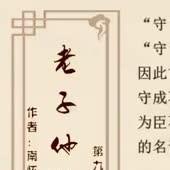 老子他
作者:南
第
“守
“守
因此
守成
为臣
的名